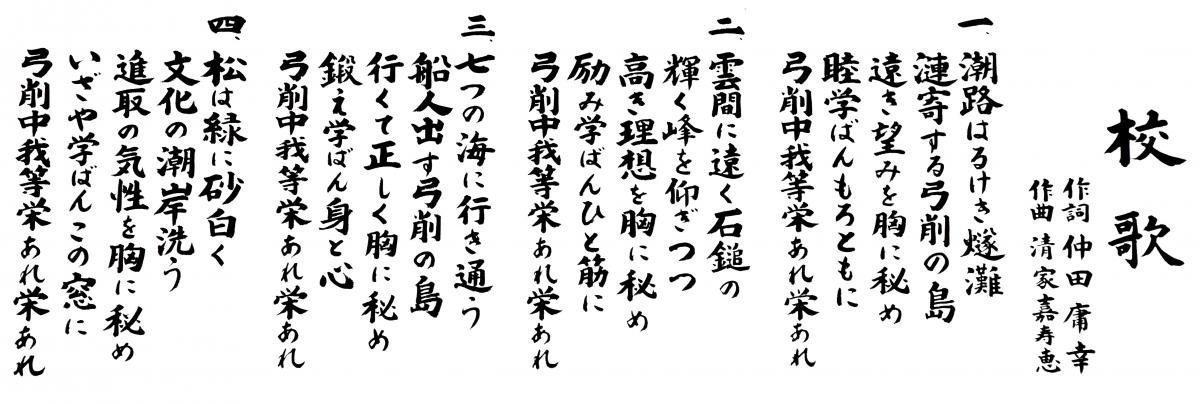 校歌
作詞 仲田庸幸
作曲 清家嘉寿恵
一、潮路はるけき燧灘
漣寄する弓削の島
遠き望みを胸に秘め
睦学ばんもろともに
弓削中我等栄あれ栄あれ
二、雲間に遠く石鎚の
輝く峰を仰ぎつつ
高き理想を胸に秘め
励み学ばんひと筋に
弓削中我等栄あれ栄あれ
三、七つの海に行き通う
船人出す弓削の島
行くて正しく胸に秘め
鍛え学ばん身と心
弓削中我等栄あれ栄あれ
四、松は緑に砂白く
文化の潮岸洗う
進取の気性を胸に秘め
いざや学ばんこの窓に
弓削中我等栄あれ栄あれ